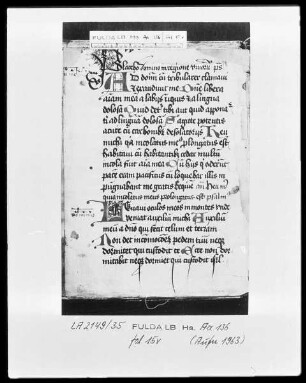 FULDA LB Hs Aa 136
Placebo domino in regione vivorum ps
AD dominum cum tribularer clamavi
et exaudivit me Domine libera
animam meam a labiis iniquis et a lingua
dolosa Quid detur tibi aut quid apponatur
tibi ad linguam dolosam Sagitte potentis
acute cum carbonibus desolatoriis Heu
michi quia incolatus meus prolongatus est
habitavi cum habitantibus cedar multum
incola fuit anima mea Cum hiis qui oderunt
pacem eram pacificus cum loquebar illis im
pugnabant me gratis
incolatus meus prolongatus est psalm
Levavi oculos meos in montes unde
veniat auxilium michi Auxilium
meum a domino qui fecit celum et terram
Non det in commocionem pedem tuum neque
dormitet qui custodit te Ecce non dor
mitabit neque dormiet qui custodit isrl
LA 2149/35 FULDA LB Hs. Aa 136
fol 15v (Aufn. 1963)